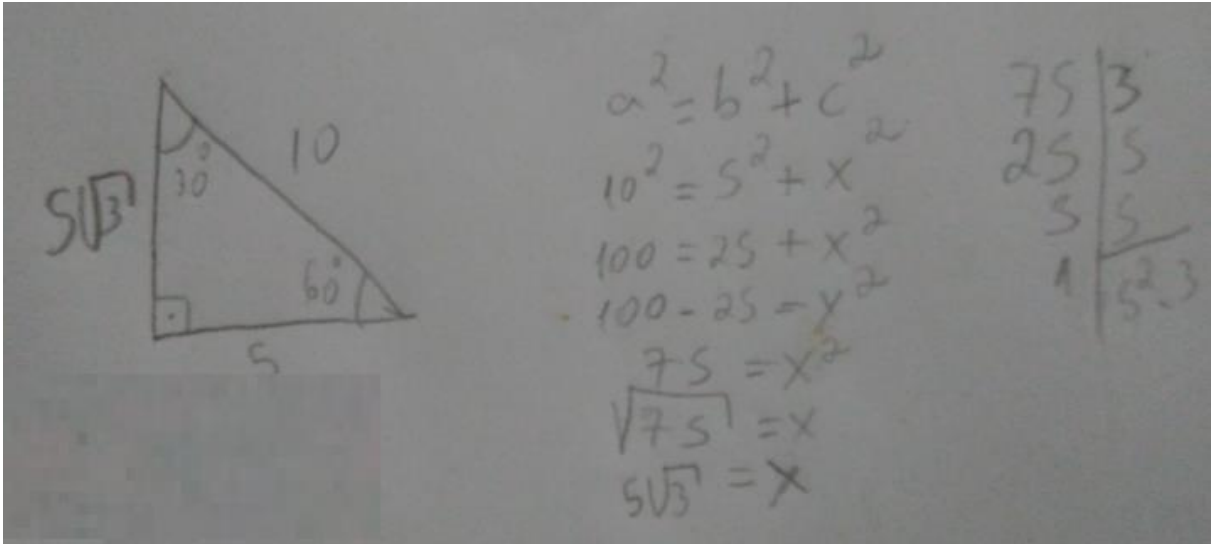 5√3
30°
10
60°
5
a² = b² + c²
10² = 5² + x²
100 = 25 + x²
100 - 25 = x²
75 = x²
√75 = x
5√3 = x
75 | 3
25 | 5
5 | 5
1 | 5².3